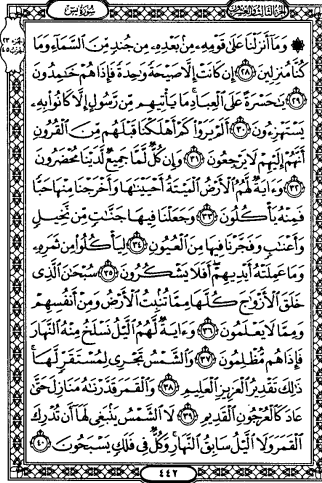 سُورَةُ يسٓ
الجُزْءُ الثَّالِثُ وَالعِشْرُونَ
۞ وَمَآ أَنزَلْنَا عَلَىٰ قَوْمِهِۦ مِنۢ بَعْدِهِۦ مِن جُندٍ مِّنَ ٱلسَّمَآءِ وَمَا
كُنَّا مُنزِلِينَ ٢٨ إِن كَانَتْ إِلَّا صَيْحَةً وَٰحِدَةً فَإِذَا هُمْ خَٰمِدُونَ
٢٩ يَٰحَسْرَةً عَلَى ٱلْعِبَادِ مَا يَأْتِيهِم مِّن رَّسُولٍ إِلَّا كَانُوا۟ بِهِۦ
يَسْتَهْزِءُونَ ٣٠ أَلَمْ يَرَوْا۟ كَمْ أَهْلَكْنَا قَبْلَهُم مِّنَ ٱلْقُرُونِ
أَنَّهُمْ إِلَيْهِمْ لَا يَرْجِعُونَ ٣١ وَإِن كُلٌّ لَّمَّا جَمِيعٌ لَّدَيْنَا مُحْضَرُونَ
٣٢ وَءَايَةٌ لَّهُمُ ٱلْأَرْضُ ٱلْمَيْتَةُ أَحْيَيْنَٰهَا وَأَخْرَجْنَا مِنْهَا حَبًّا
فَمِنْهُ يَأْكُلُونَ ٣٣ وَجَعَلْنَا فِيهَا جَنَّٰتٍ مِّن نَّخِيلٍ
وَأَعْنَٰبٍ وَفَجَّرْنَا فِيهَا مِنَ ٱلْعُيُونِ ٣٤ لِيَأْكُلُوا۟ مِن ثَمَرِهِۦ
وَمَا عَمِلَتْهُ أَيْدِيهِمْ أَفَلَا يَشْكُرُونَ ٣٥ سُبْحَٰنَ ٱلَّذِى
خَلَقَ ٱلْأَزْوَٰجَ كُلَّهَا مِمَّا تُنۢبِتُ ٱلْأَرْضُ وَمِنْ أَنفُسِهِمْ
وَمِمَّا لَا يَعْلَمُونَ ٣٦ وَءَايَةٌ لَّهُمُ ٱلَّيْلُ نَسْلَخُ مِنْهُ ٱلنَّهَارَ
فَإِذَا هُم مُّظْلِمُونَ ٣٧ وَٱلشَّمْسُ تَجْرِى لِمُسْتَقَرٍّ لَّهَا
ذَٰلِكَ تَقْدِيرُ ٱلْعَزِيزِ ٱلْعَلِيمِ ٣٨ وَٱلْقَمَرَ قَدَّرْنَٰهُ مَنَازِلَ حَتَّىٰ
عَادَ كَٱلْعُرْجُونِ ٱلْقَدِيمِ ٣٩ لَا ٱلشَّمْسُ يَنۢبَغِى لَهَآ أَن تُدْرِكَ
ٱلْقَمَرَ وَلَا ٱلَّيْلُ سَابِقُ ٱلنَّهَارِ وَكُلٌّ فِى فَلَكٍ يَسْبَحُونَ ٤٠
٤٤٢